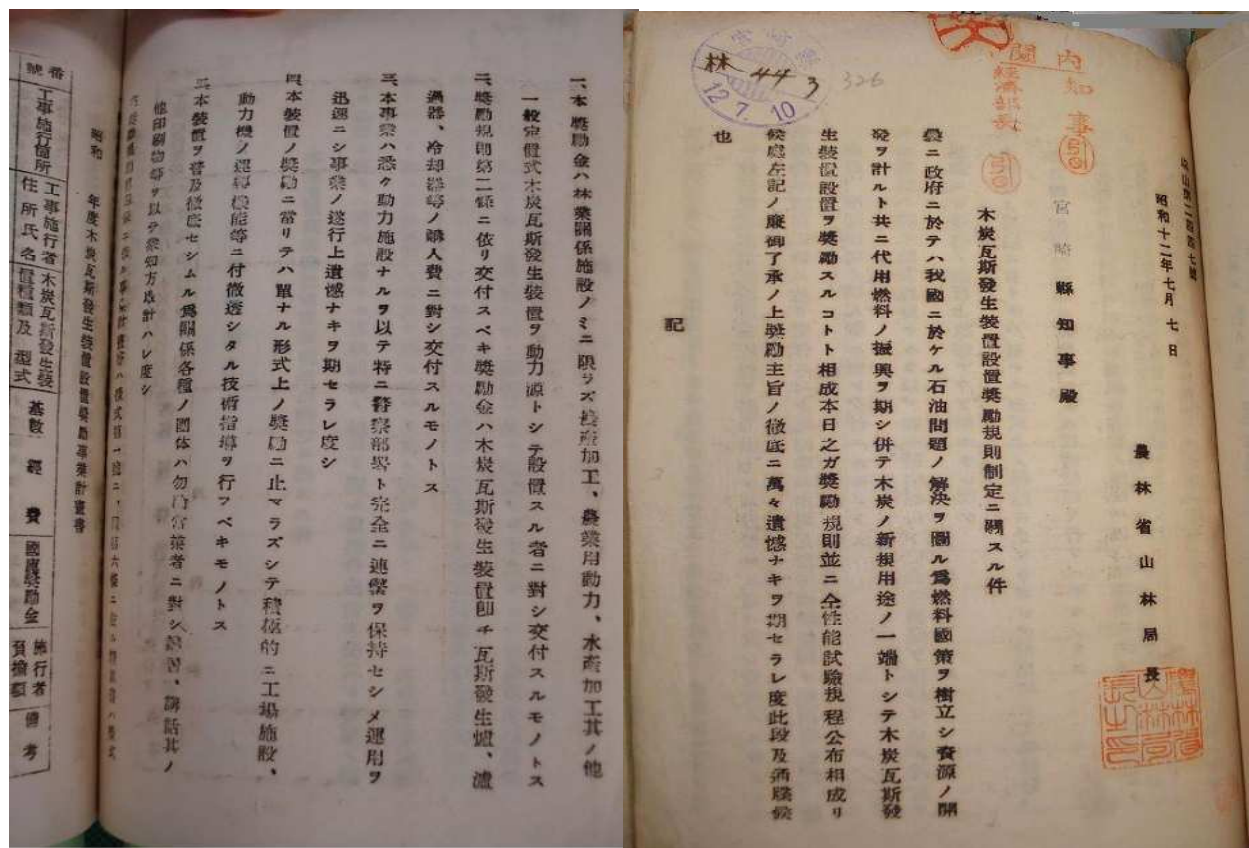 昭和十二年七月七日
農林省山林局長
宮崎縣知事殿
木炭瓦斯發生装置設置奬勵規則制定ニ關スル件
曩ニ政府ニ於テハ我國ニ於ケル石油問題ノ解決ヲ圖ル爲燃料國策ヲ樹立シ資源ノ開
發ヲ計ルト共ニ代用燃料ノ振興ヲ期シ併テ木炭ノ新規用途ノ一端トシテ木炭瓦斯發
生装置設置ヲ奬勵スルコトト相成本日之ガ奬勵規則並ニ仝性能試驗規程公布相成リ
候處左記ノ廉御了承ノ上奬勵主旨ノ徹底ニ萬々遺憾ナキヲ期セラレ度此段及通牒候
也
記
内閣
知事
經濟部長
宮崎縣
林 44 3
12.7.10
326
一、本奬勵金ハ林業關係施設ノミニ限ラズ畜産加工、農業用動力、水產加工其ノ他
一般定置式木炭瓦斯發生装置ヲ動力源トシテ設置スル者ニ對シ交付スルモノトス
二、奬勵規則第二條ニ依リ交付スベキ奬勵金ハ木炭瓦斯發生装置卽チ瓦斯發生爐、濾
過器、冷却器等ノ購入費ニ對シ交付スルモノトス
三、本事業ハ悉ク動力施設ナルヲ以テ特ニ警察部署ト完全ニ連繫ヲ保持セシメ運用ヲ
迅速ニシ事業ノ遂行上遺憾ナキヲ期セラレ度シ
四、本装置ノ奬勵ニ當リテハ單ナル形式上ノ奬勵ニ止マラズシテ積極的ニ工場施設、
動力機ノ運轉機能等ニ付徹透シタル技術指導ヲ行フベキモノトス
五、本装置ヲ普及徹底セシムル爲關係各種ノ團体ハ勿論當業者ニ對シ講習、講話其ノ
他印刷物等ヲ以テ衆知方取計ハレ度シ
昭和 年度木炭瓦斯發生装置設置奬勵事業計畫書
番號
工事施行箇所
工事施行者住所氏名
木炭瓦斯發生装置種類及型式
基數
經費
國庫奬勵金
施行者負擔額
備考